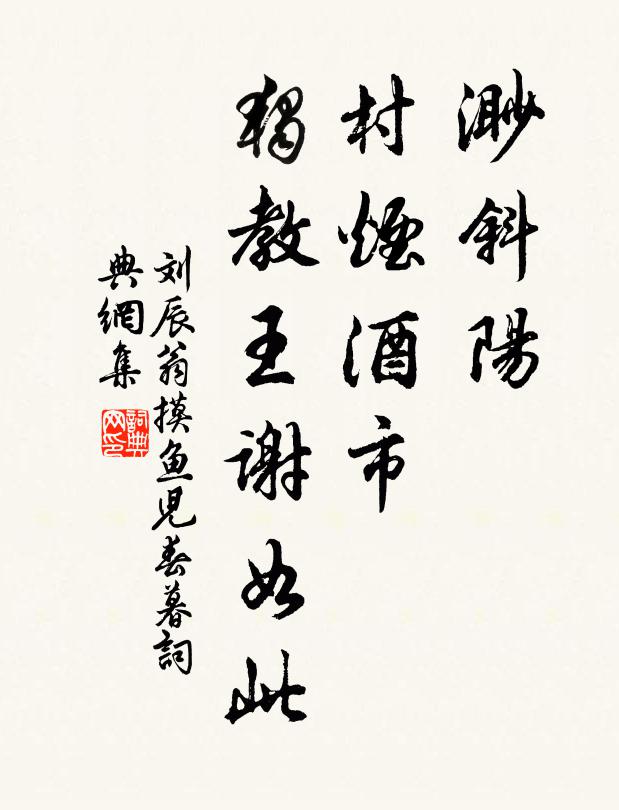 渺斜陽
村煙酒市
獨教王謝如此
刘辰翁摸鱼児春暮詞
典網集
詞典網印